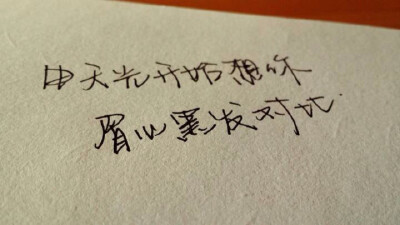 由天光开始想你
眉心黑发对比